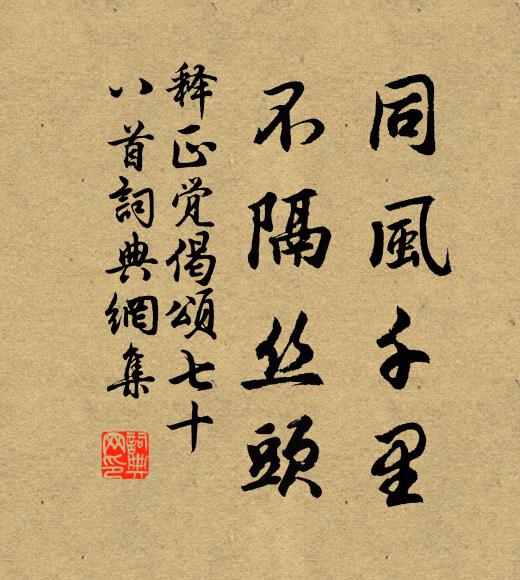 同風千里
不隔丝頭
释正觉偈頌七十
八首詞典網集
詞典
网印